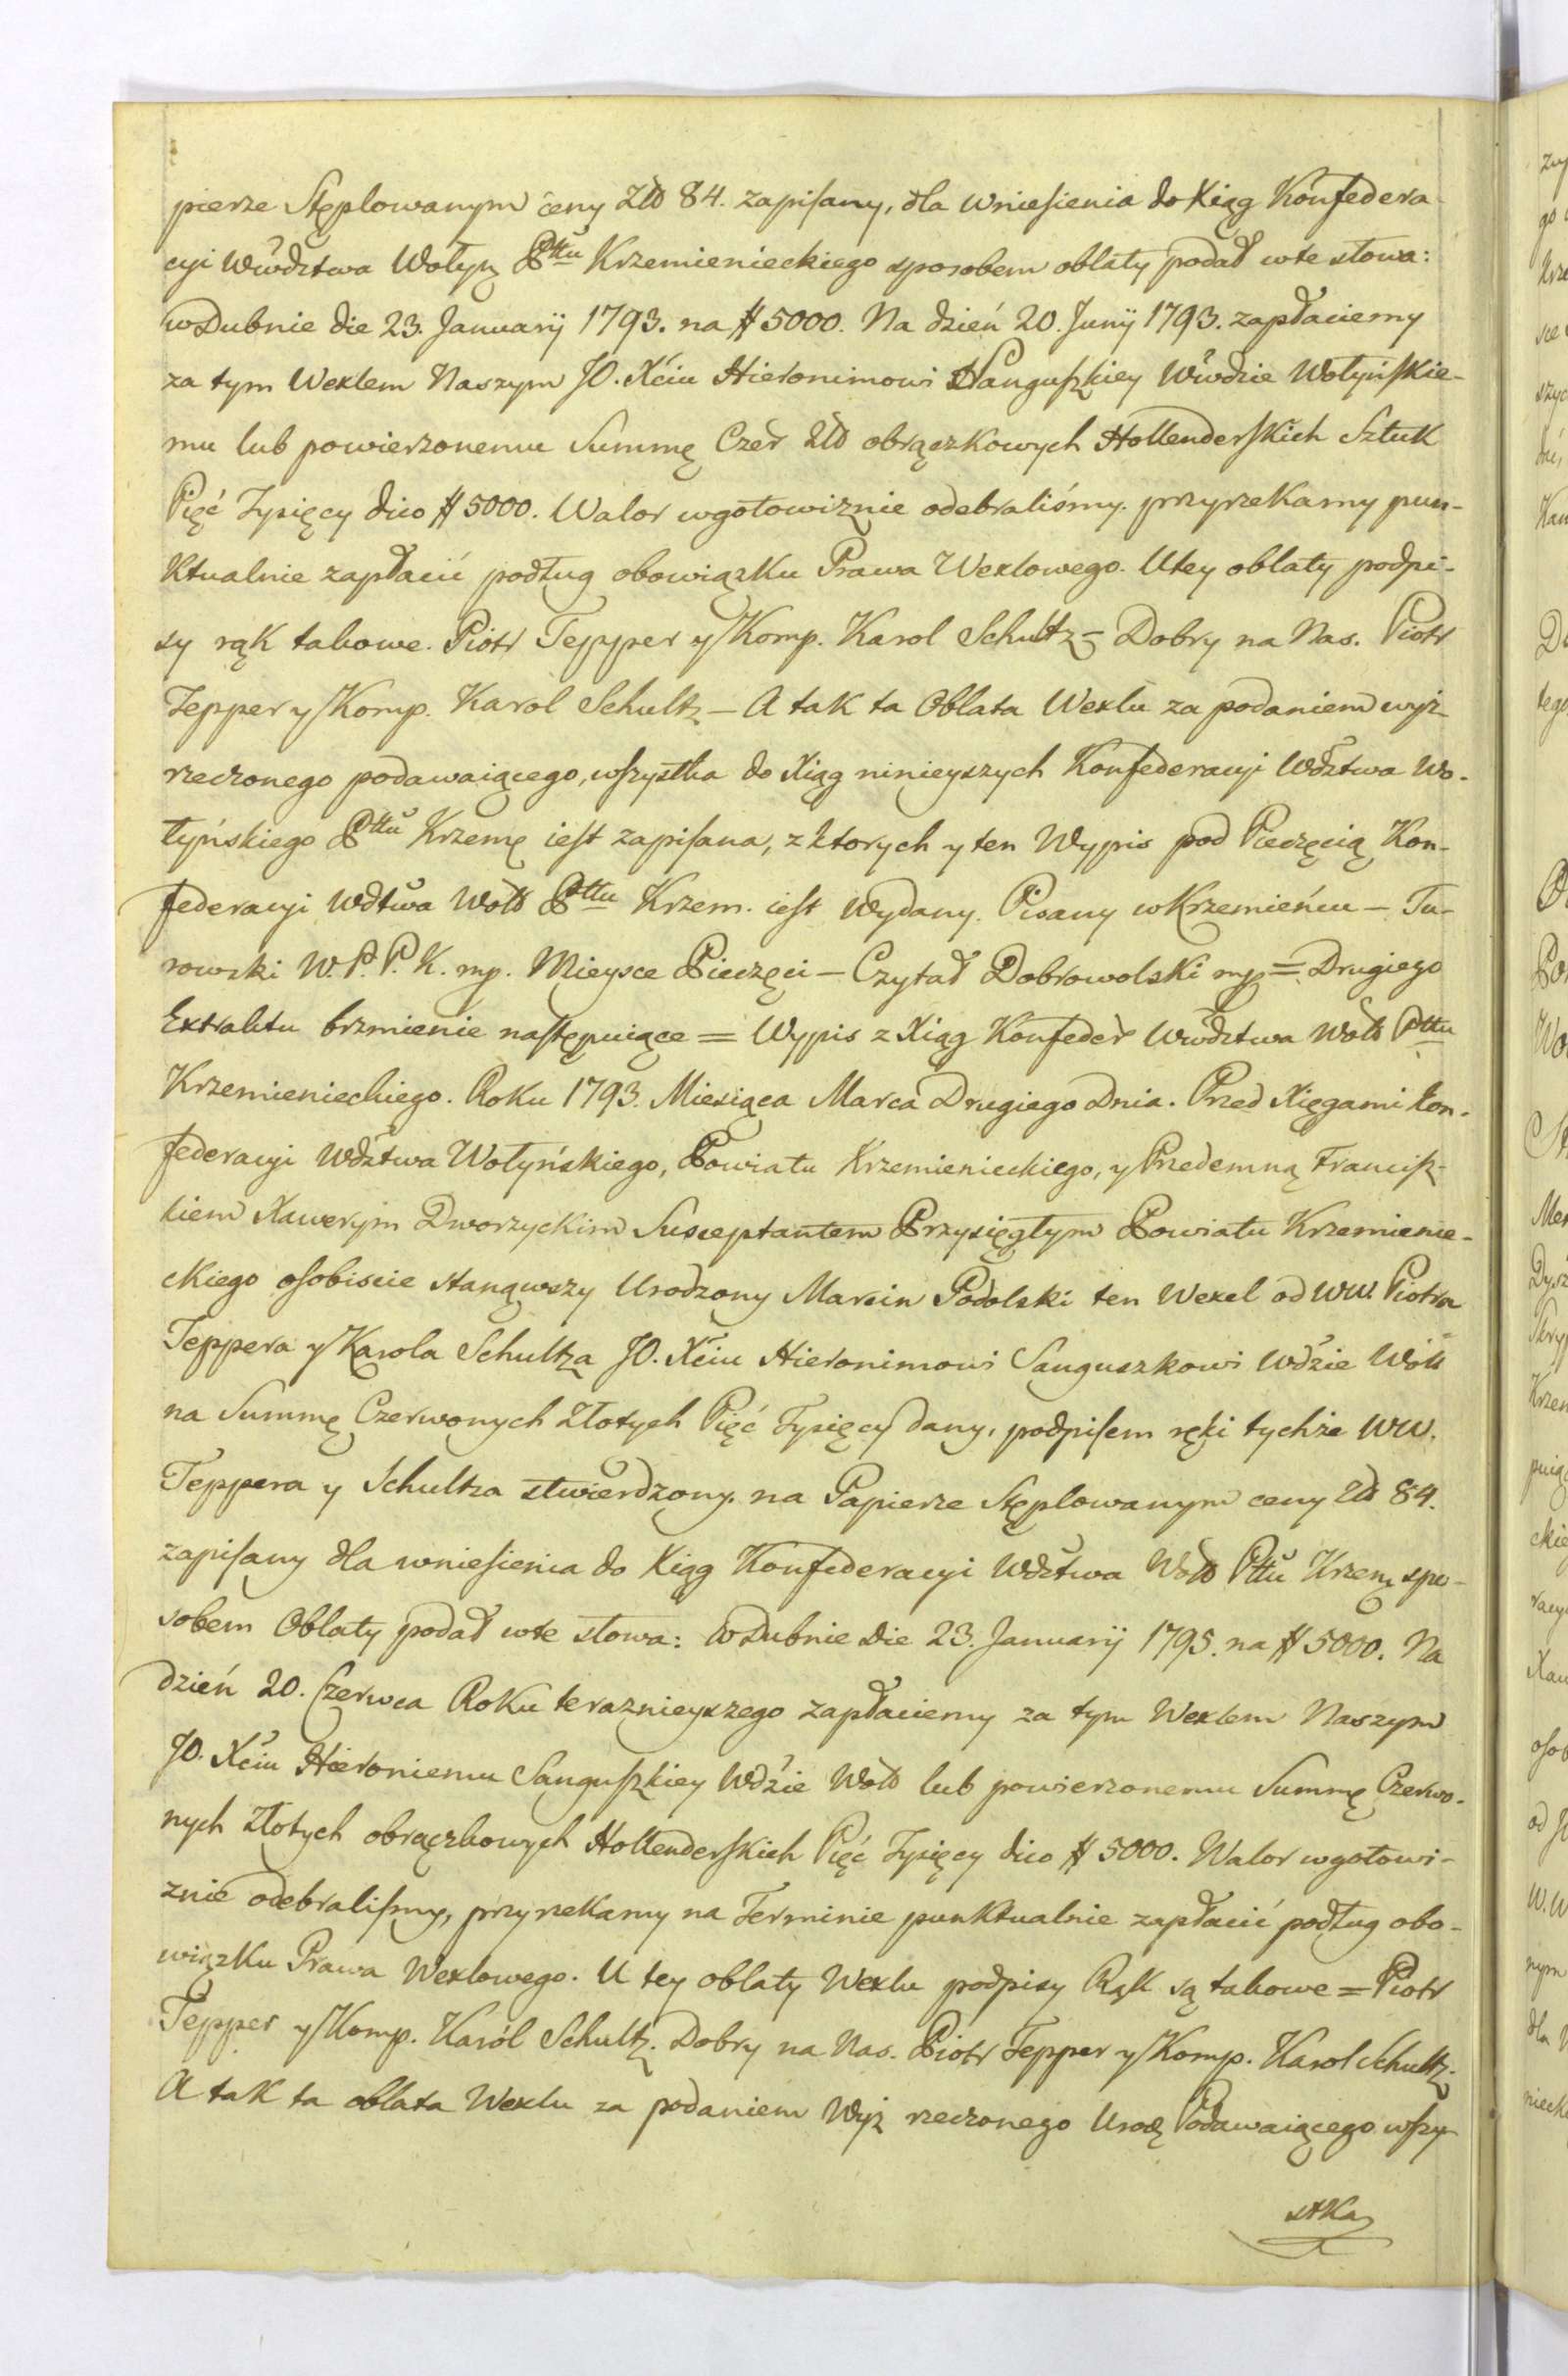 pierze Stęplowanym ceny Złł 84. zapisany, dla wniesienia do Xiąg Konfedera-
cyi Wwdztwa Wołyn Pttu Krzemienieckiego sposobem oblaty podał wte słowa:
w Dubnie die 23. Januarij 1793. na # 5000. Na dzień 20. Junij 1793. zapłaciemy
za tym Wexlem Naszym JO. Xciu Hieronimowi Sanguszkiey Wwdzie Wołyńskie-
mu lub powierzonemu Summę Czer Złł obrączkowych Hollenderskich Sztuk
Pięć Tysięcy dico # 5000. Walor wgotowiznie odebraliśmy. przyrzekamy pun-
ktualnie zapłacić podług obowiązku Prawa Wexlowego. U tey oblaty podpi-
sy rąk takowe. Piotr Tepper y Komp. Karol Schultz = Dobry na Nas. Piotr
Tepper y Komp. Karol Schultz — A tak ta Oblata Wexlu za podaniem wyż-
rzeczonego podawaiącego, wszystka do Xiąg ninieyszych Konfederacyi Wdztwa Wo-
łyńskiego Pttu Krzem iest zapisana, z ktorych y ten Wypis pod Pieczęcią Kon-
federacyi Wdtwa Wołł Pttu Krzem. iest wydany. Pisany w Krzemieńcu — Tu-
rowski W. P. P. K. mp. Mieysce Pieczęci — Czytał Dobrowolski mp = Drugiego
Extraktu brzmienie następuiące = Wypis z Xiąg Konfeder Wwdztwa Wołł Pttu
Krzemienieckiego. Roku 1793. Miesiąca Marca Drugiego Dnia. Przed Xięgami kon-
federacyi Wdztwa Wołyńskiego, Powiatu Krzemienieckiego, y Przedemną Francisz-
kiem Xawerym Dworzyckim Susceptantem Przysięgłym Powiatu Krzemienie-
ckiego osobiscie stanąwszy Urodzony Marcin Podolski ten Wexel od WW. Piotra
Teppera y Karola Schultza JO. Xciu Hieronimowi Sanguszkowi Wdzie Wołł
na Summę Czerwonych Złotych Pięć Tysięcy dany, podpisem ręki tychże WW.
Teppera y Schultza stwierdzony. na Papierze Stęplowanym ceny Złł 84.
zapisany dla wniesienia do Xiąg Konfederacyi Wdztwa Wołł Pttu Krzem spo-
sobem Oblaty podał wte słowa: w Dubnie Die 23. Januarij 1795. na # 5000. Na
dzień 20. Czerwca Roku teraznieyszego zapłaciemy za tym Wexlem Naszym
JO. Xciu Hieroniemu Sanguszkiey Wdzie Wołł lub powierzonemu Summę Czerwo-
nych Złotych obrączkowych Hollenderskich Pięć Tysięcy dico # 5000. Walor wgotowi-
znie odebralismy, przyrzekamy na Terminie punktualnie zapłacić podług obo-
wiązku Prawa Wexlowego. U tey oblaty Wexlu podpisy Rąk są takowe = Piotr
Tepper y Komp. Karol Schultz. Dobry na Nas. Piotr Tepper y Komp. Karol Schultz.
A tak ta oblata Wexlu za podaniem Wyż rzeczonego Urodz Podawaiącego wszy-
stka